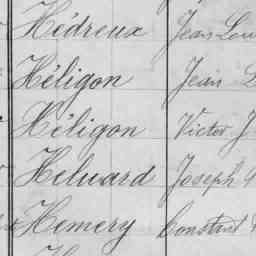 Hédreux Jean Lou
Héligon Jean L
Héligon Victor J
Heluard Joseph
Hemery Constant